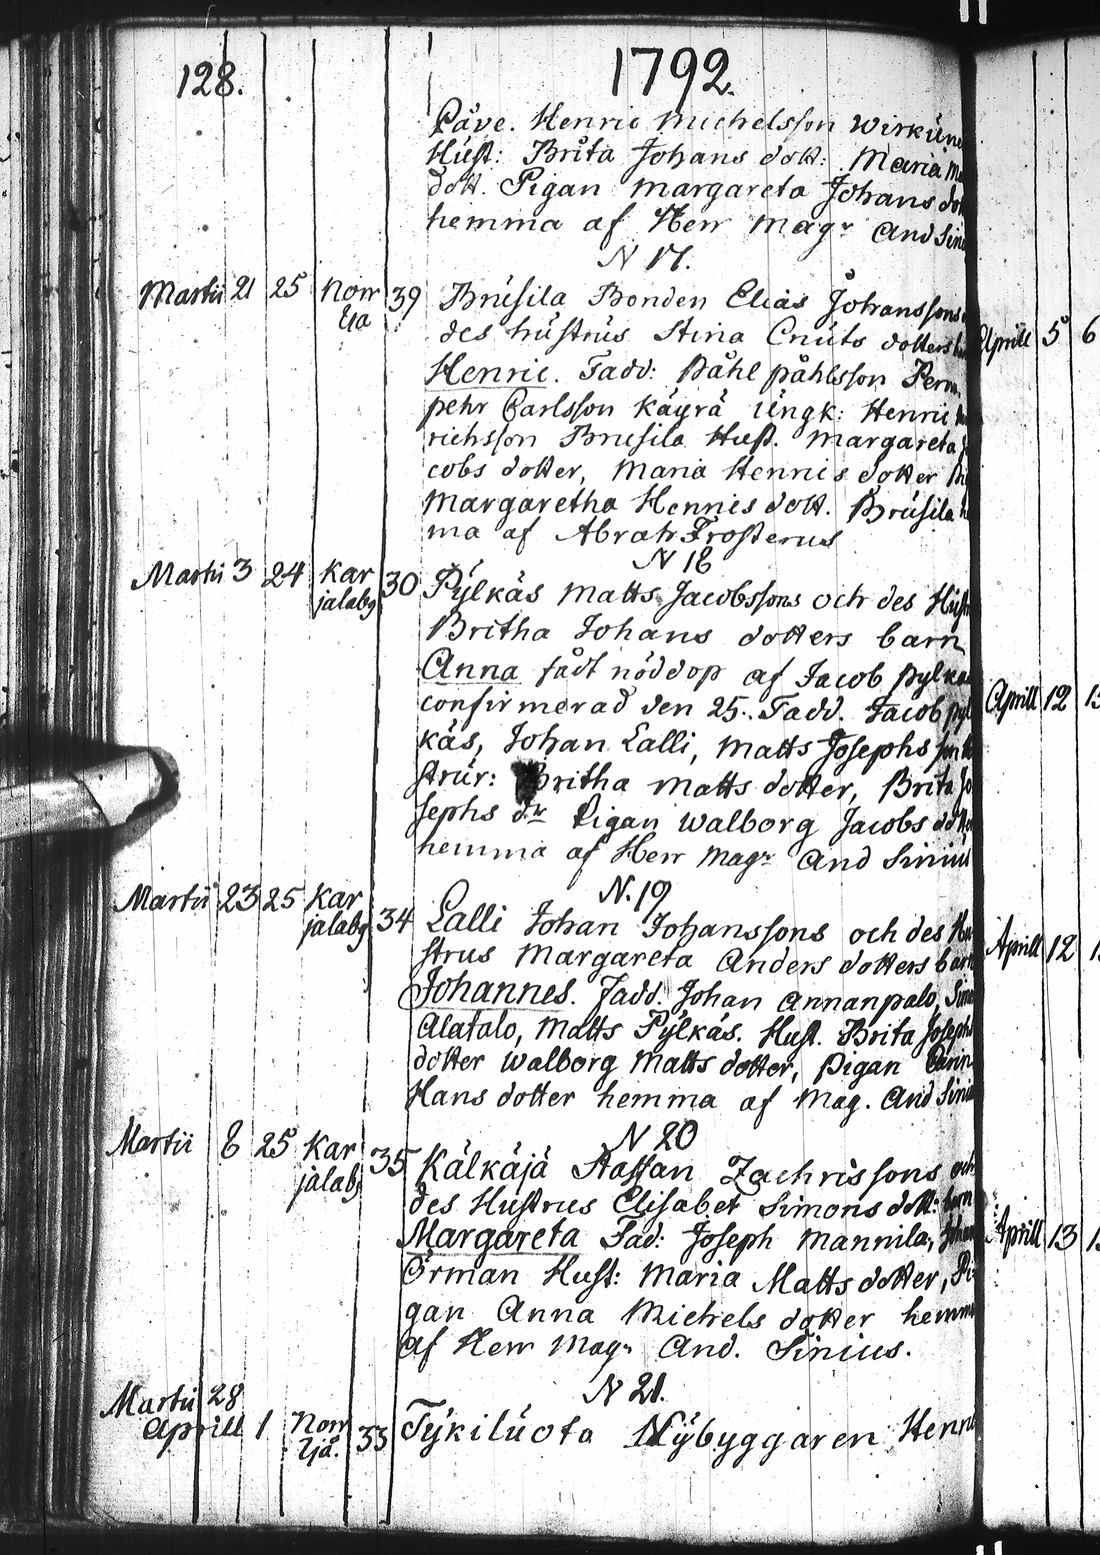 128.
1792.
Påve. Henric Michelsson Wirkun
Hust: Brita Johans dott: Maria
dott. Pigan Margareta Johans dott
hemma af Herr Magr And Sini
N 17.
Martii 21 25 Norr 39 Brusila Bonden Elias Johanssons
Yia des hustrus Stina Cnuts dotters
Henric. Fadd: Påhl påhlsson Perm
pehr Carlsson Käyrä ungk: Henric
richsson Brusila Hust. Margareta
cobs dotter, Maria Henrics dotter
Margaretha Henrics dott. Brusila
ma af Abrah Frosterus
N 18
Martii 3 24 Kar 30 Pylkäs Matts Jacobssons och des Hust
jalabg Britha Johans dotters barn
Anna fådt nöddop af Jacob pylkä
confirmerad den 25. Fadd. Jacob pyl
käs, Johan Lalli, Matts Josephsson
strur: Britha Matts dotter, Brita Jo
sephs dr Pigan Walborg Jacobs dotter
hemma af Herr Magr And Sinius
N. 19
Martii 23 25 Kar 34 Lalli Johan Johanssons och des Hu
jalabg strus Margareta Anders dotters barn
Johannes. Fadd. Johan Annanpalo, Sim
Alatalo, Matts Pylkäs. Hust. Brita Josephs
dotter Walborg Matts dotter, Pigan Carin
Hans dotter hemma af Mag. And Sini
N 20
Martii 8 25 Kar 35 Kälkäjä Staffan Zachrissons och
jalabg des Hustrus Elisabet Simons dott: barn
Margareta Fad: Joseph Mannila, Johan
Örman Hust: Maria Matts dotter, Pi
gan Anna Michels dotter hemma
af Herr Magr And. Sinius.
N 21.
Martii 28
Aprill 1 Norr 33 Tykiluota Nybyggaren Henri
Yjä.
Aprill 5 6
Aprill 12
Aprill 12
Aprill 13